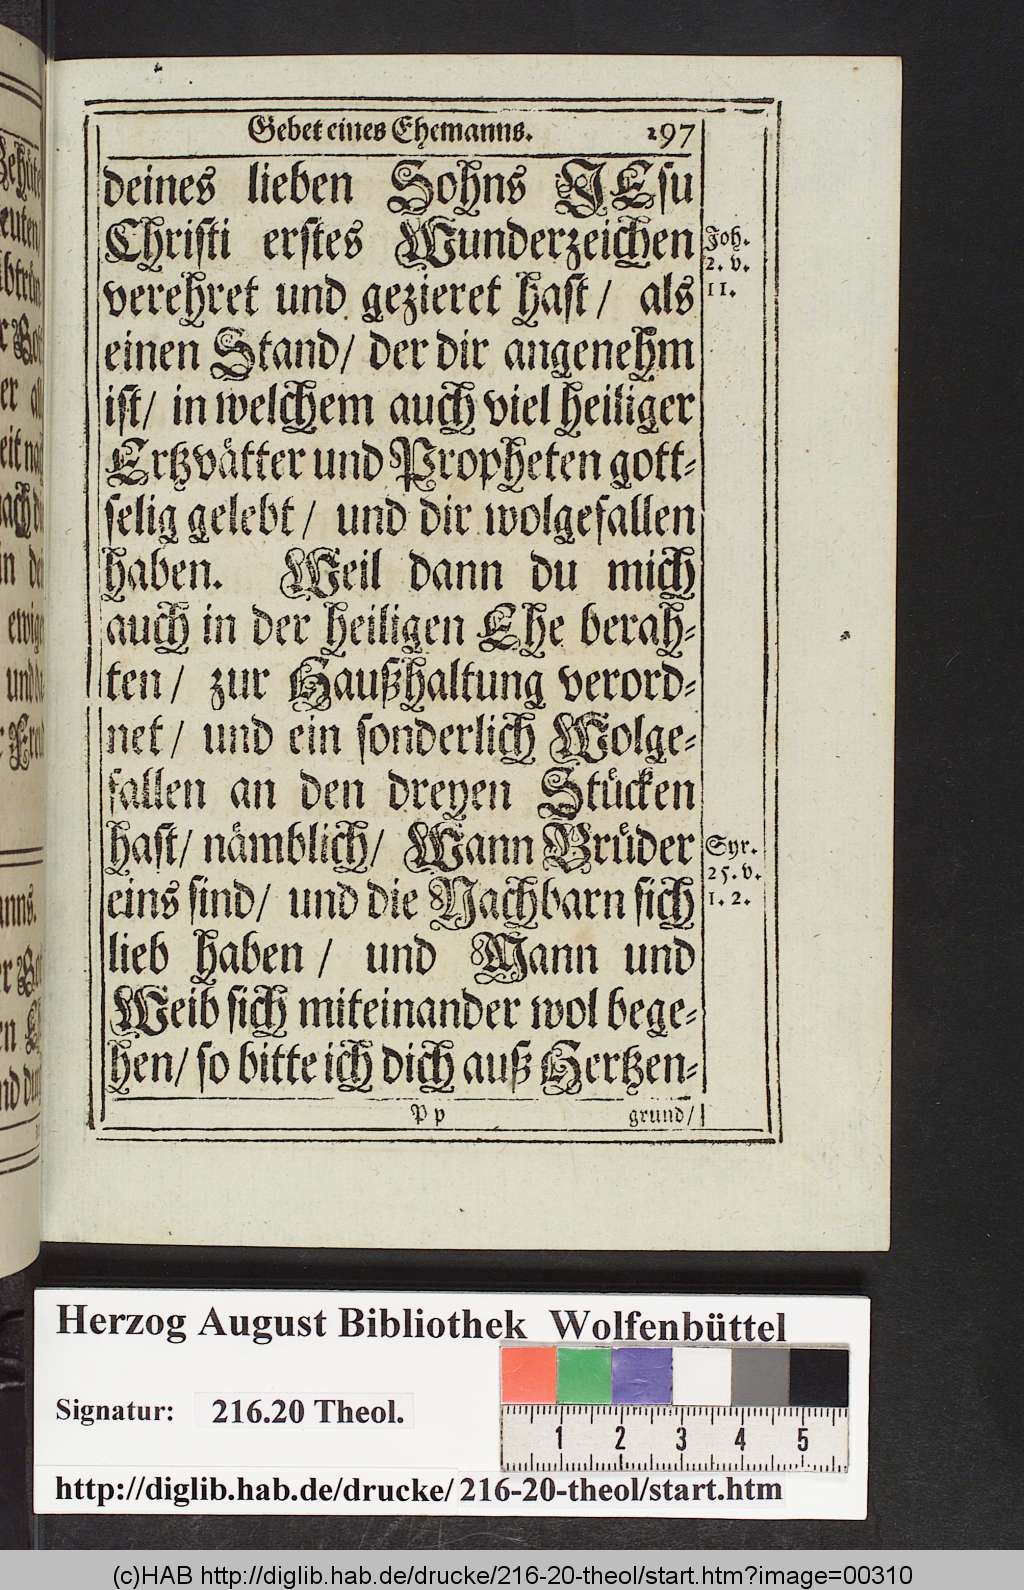 Gebet eines Ehemanns. 297
deines lieben Sohns JEsu
Christi erstes Wunderzeichen
verehret und gezieret hast/ als
einen Stand/ der dir angenehm
ist/ in welchem auch viel heiliger
Ertzvätter und Propheten gott-
selig gelebt/ und dir wolgefallen
haben. Weil dann du mich
auch in der heiligen Ehe berah-
ten/ zur Haußhaltung verord-
net/ und ein sonderlich Wolge-
fallen an den dreyen Stücken
hast/ nämblich/ Wann Brüder
eins sind/ und die Nachbarn sich
lieb haben/ und Mann und
Weib sich miteinander wol bege-
hen/ so bitte ich dich auß Hertzen-
Pp grund/
Joh.
2. v.
11.
Syr.
25. v.
1. 2.
Herzog August Bibliothek Wolfenbüttel
Signatur: 216.20 Theol.
1 2 3 4 5
http://diglib.hab.de/drucke/ 216-20-theol/start.htm
(c)HAB http://diglib.hab.de/drucke/216-20-theol/start.htm?image=00310